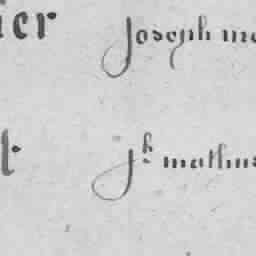 ier Joseph me
t Jh mathus